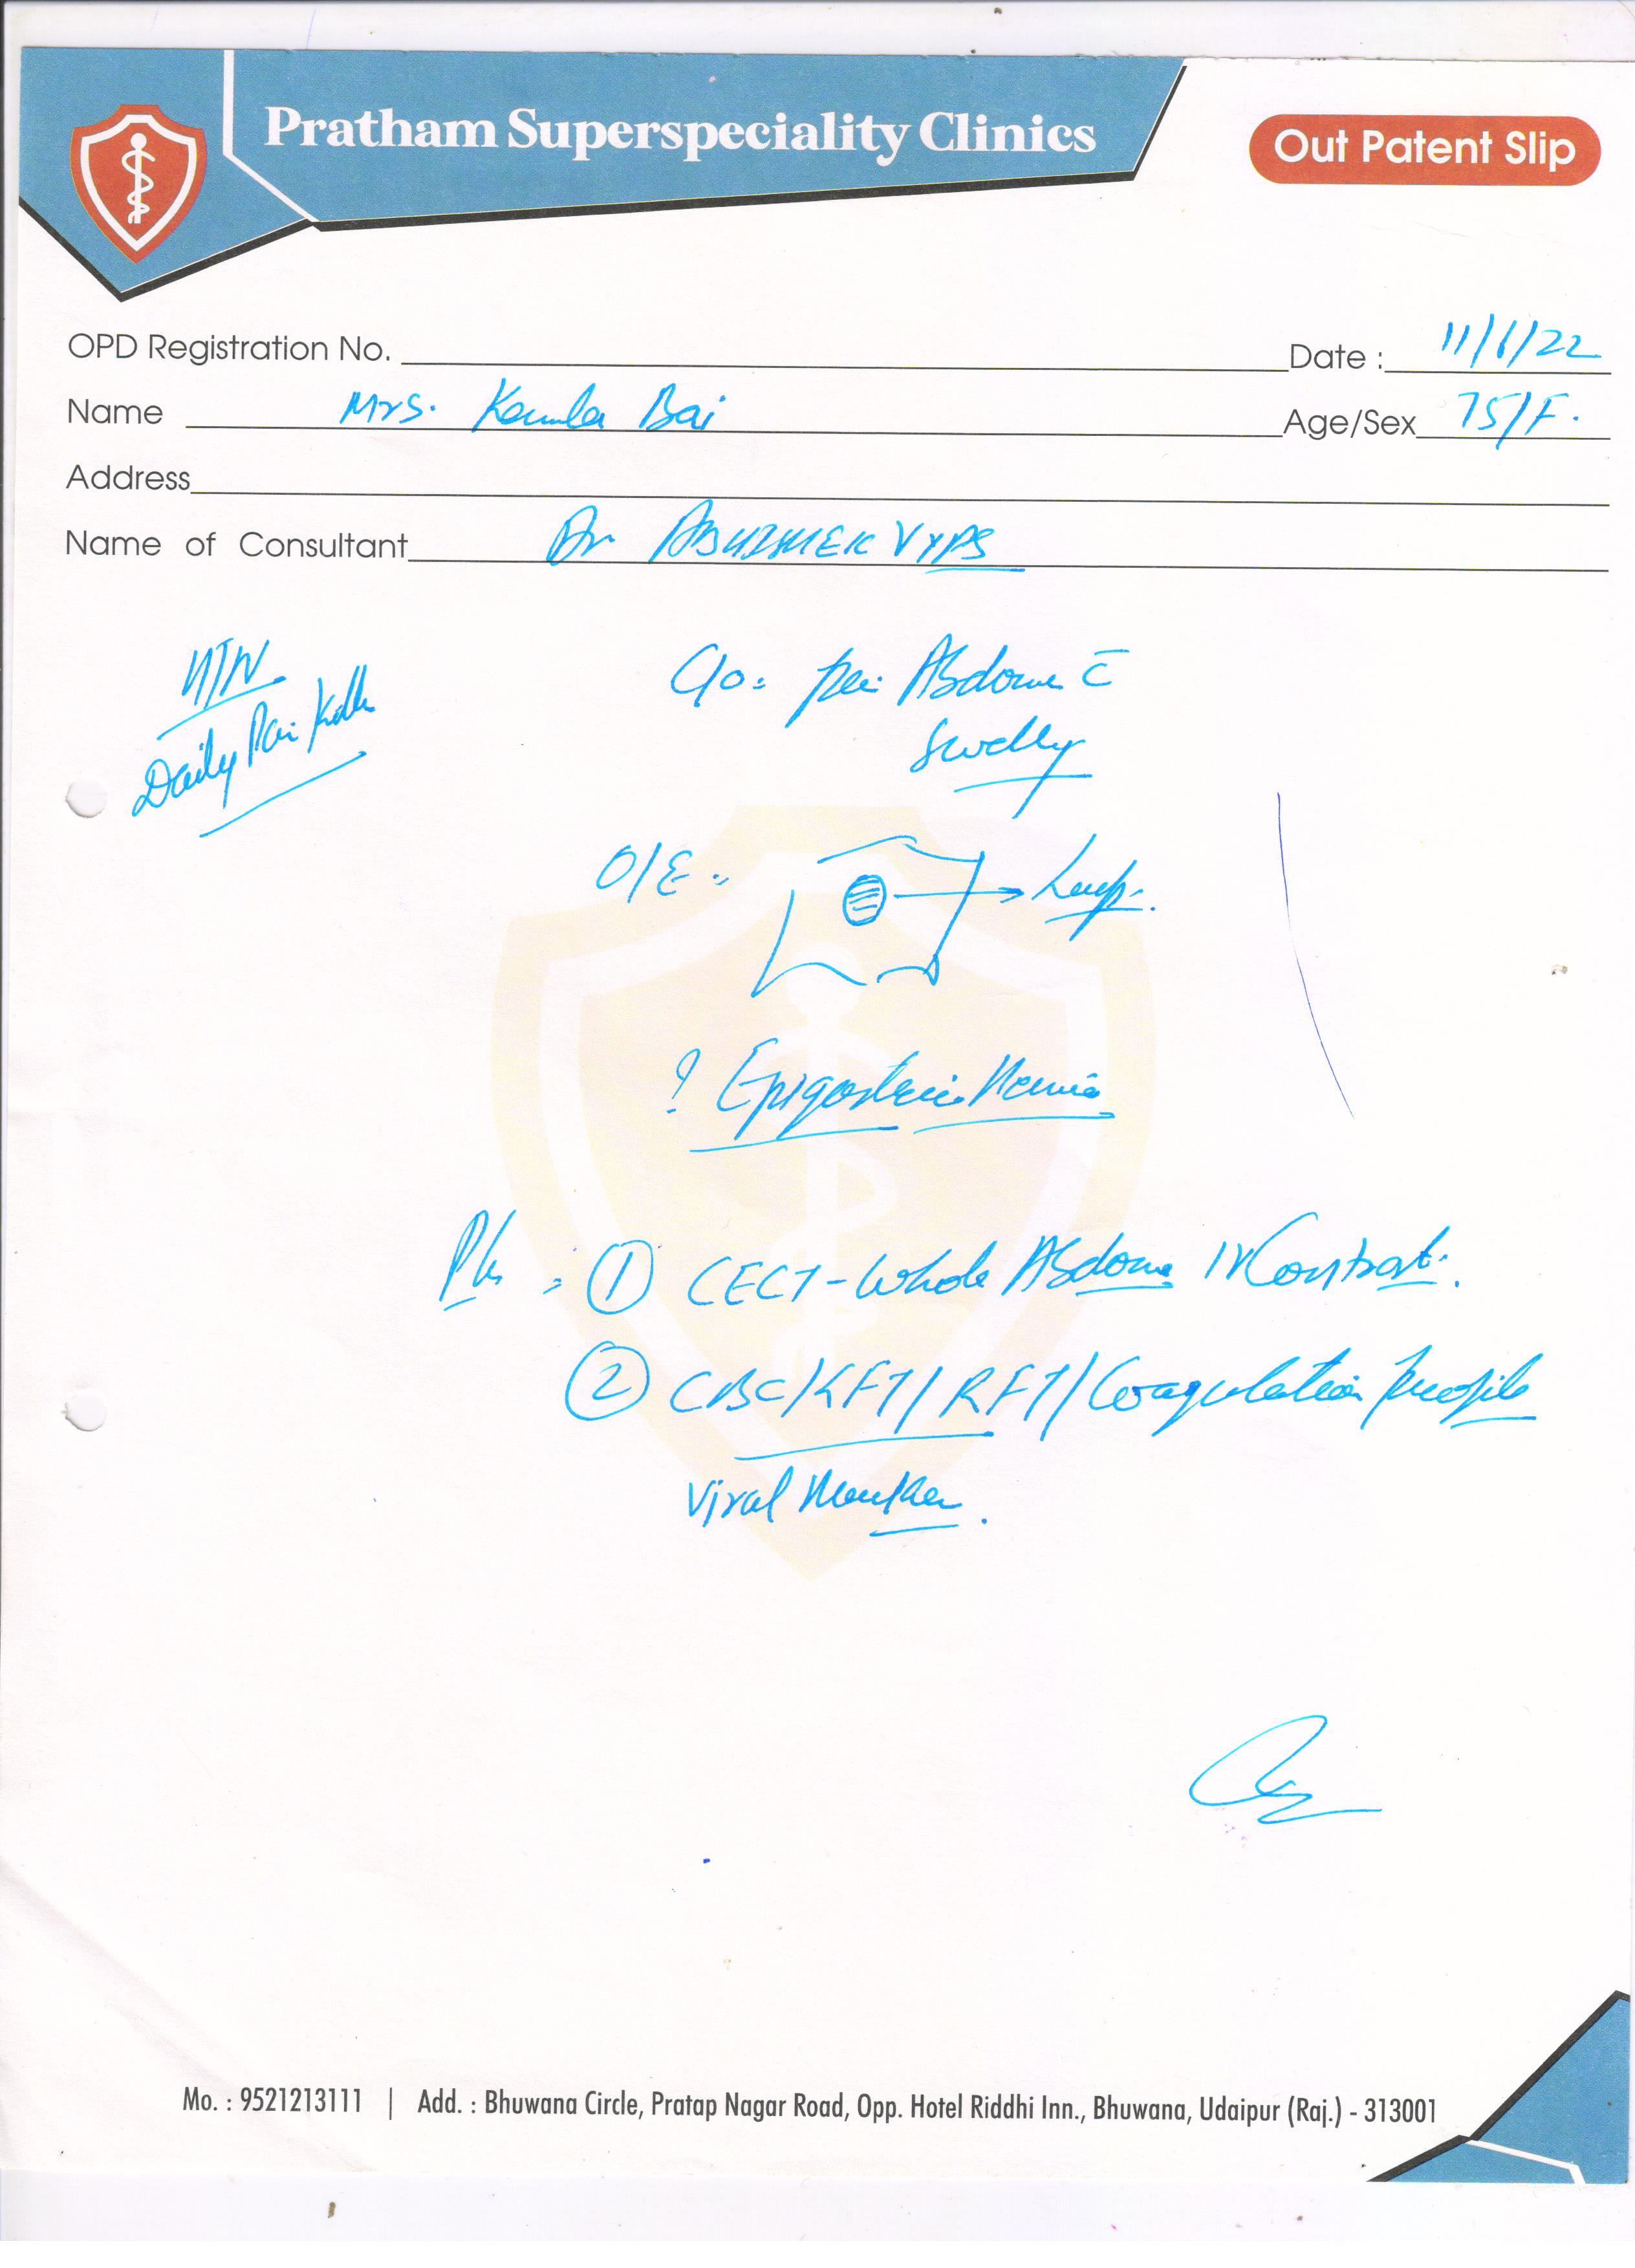 Pratham Superspeciality Clinics
Out Patent Slip
OPD Registration No.
Date : 11/6/22
Name Mrs. Kamla Bai
Age/Sex 75/F.
Address
Name of Consultant Dr ABHISHEK VYAS
HTN
Daily Pain
C/o: Pain Abdomen c̄
Swelling
O/E :
Lump.
? Epigastric Hernia
Plan : ① CECT - Whole Abdomen IV Contrast.
② CBC/KFT/RFT/Coagulation Profile
Viral Marker.
Mo. : 9521213111 | Add. : Bhuwana Circle, Pratap Nagar Road, Opp. Hotel Riddhi Inn., Bhuwana, Udaipur (Raj.) - 313001